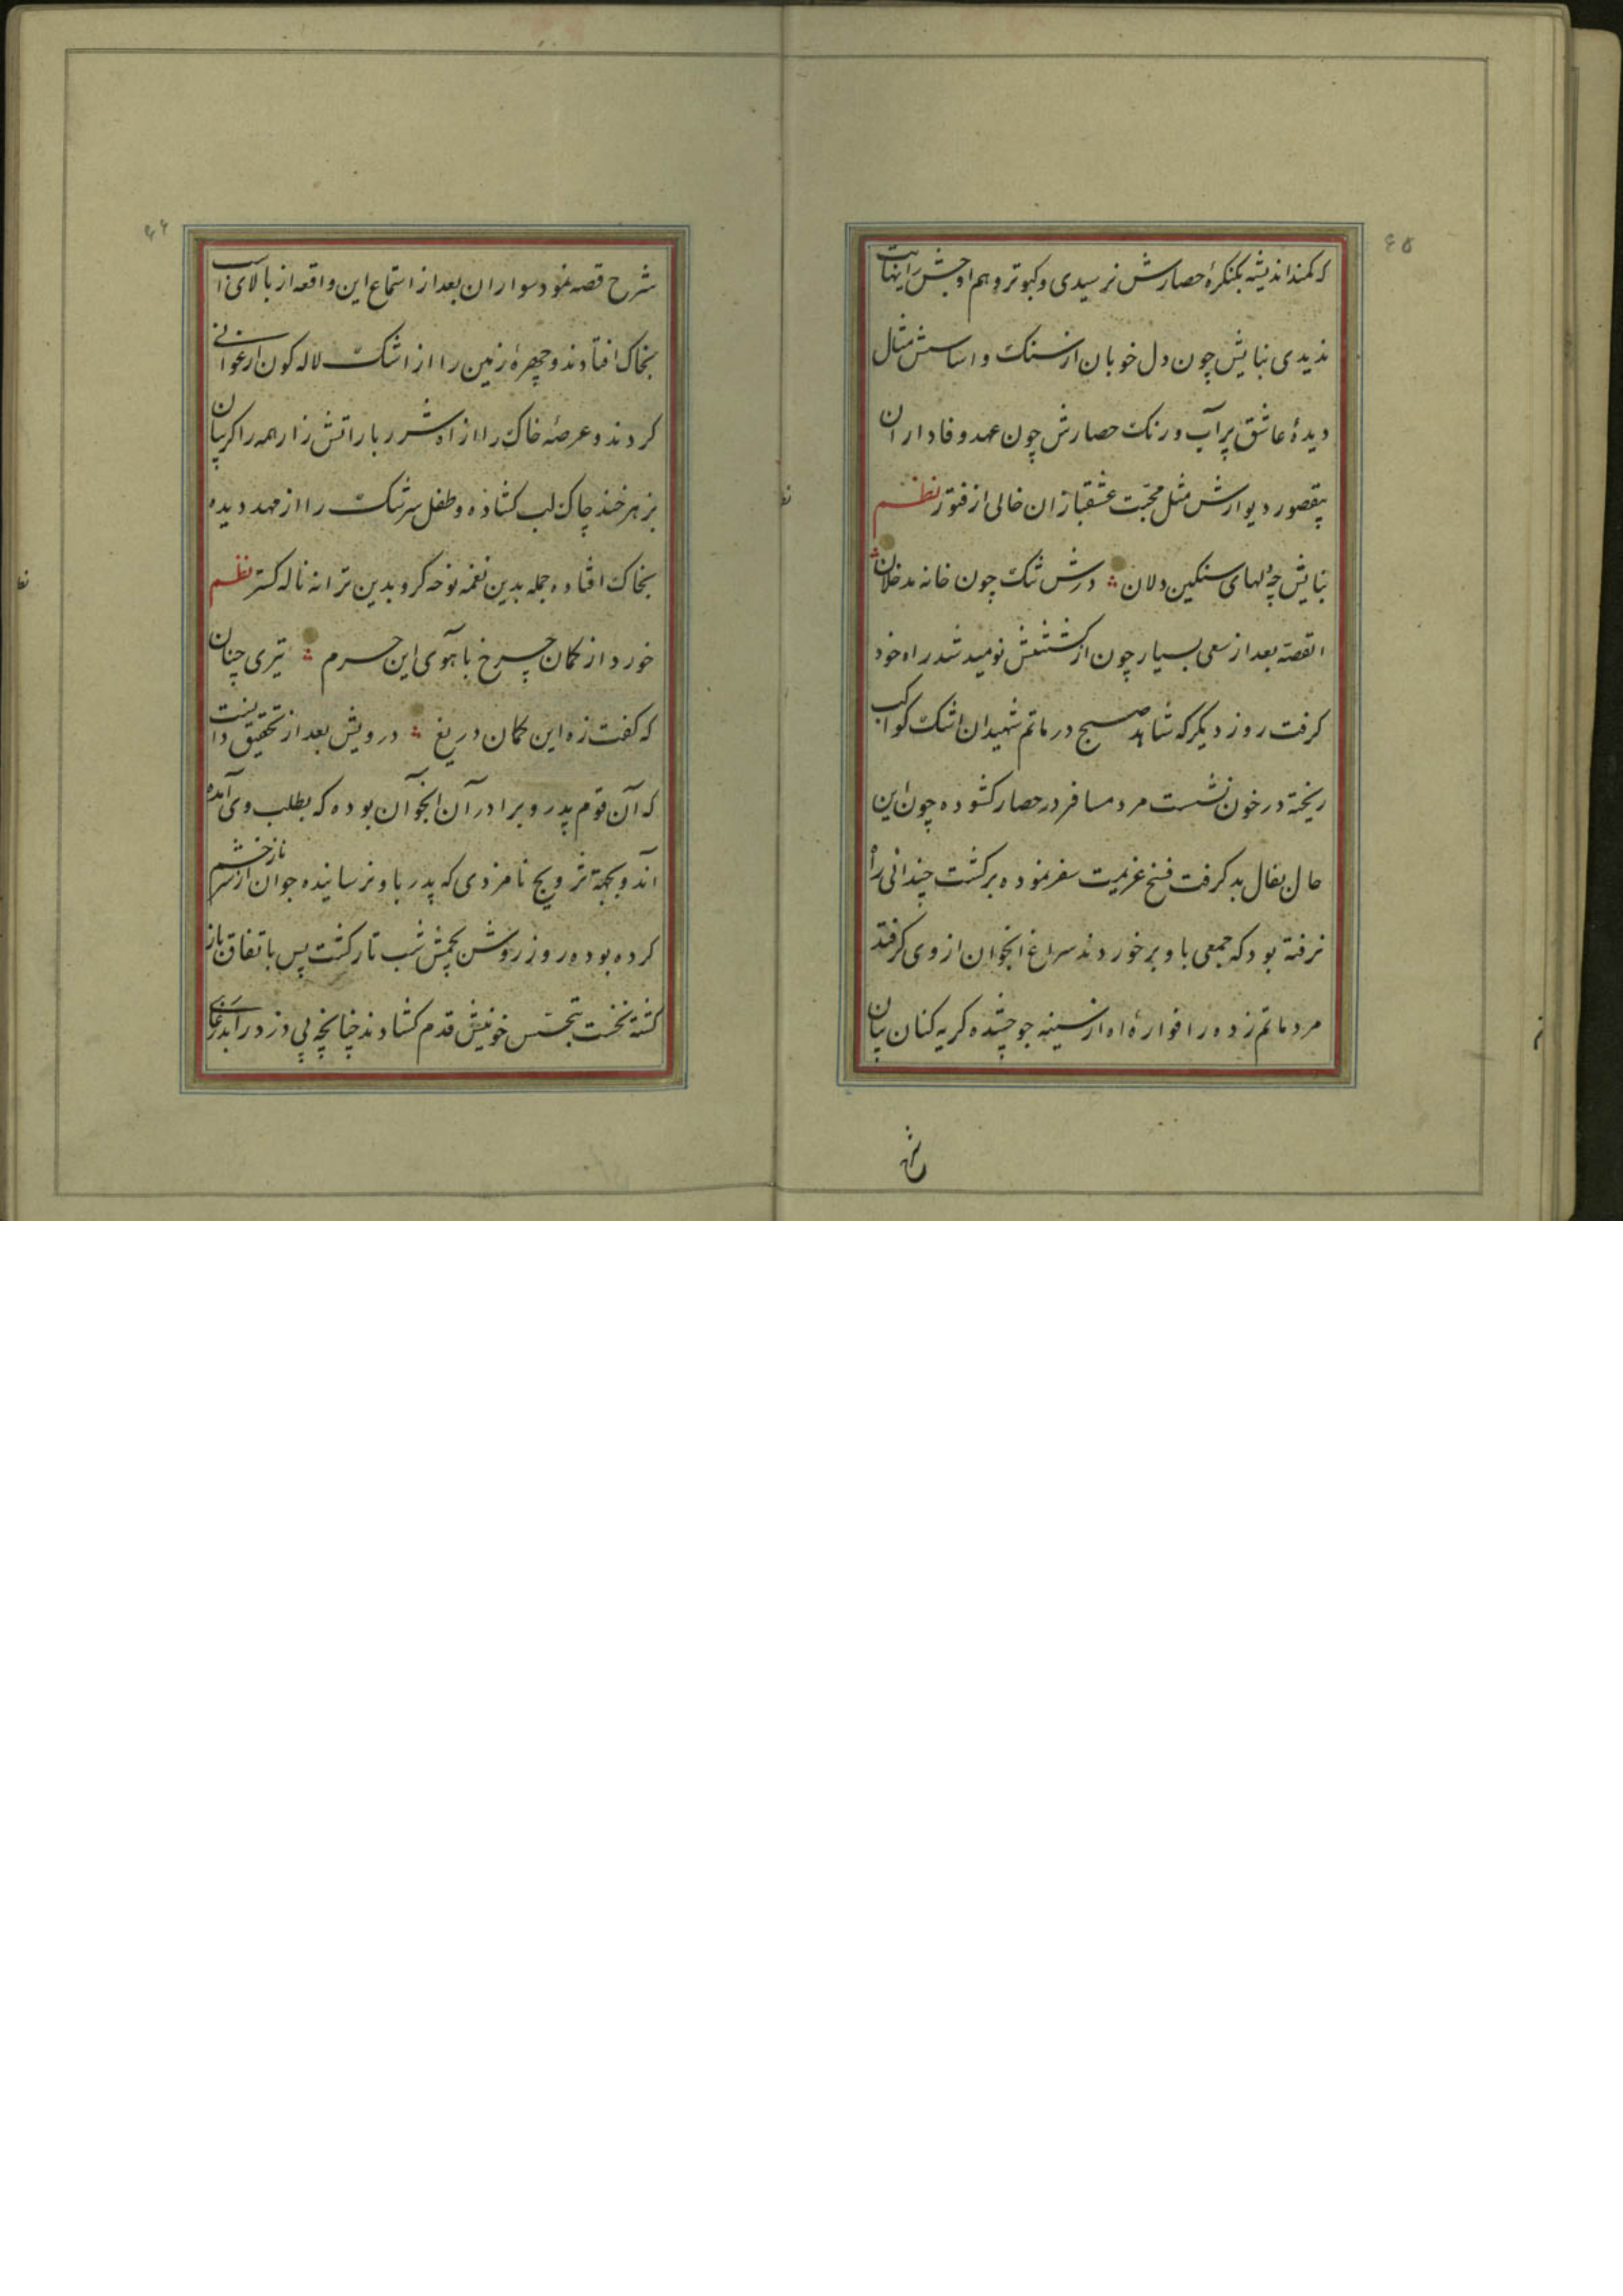 ۶۵
که کمند اندیشه بکنکرهٔ حصارش نرسیدی و کبوتر وهم اوجش را نهایت
ندیدی بنایش چون دل خوبان از سنک و اساسش مثال
دیدهٔ عاشق پر آب و رنک حصارش چون عهد وفاداران
بیقصور دیوارش مثل محبت عشقبازان خالی از فتور نظم
بنایش چو دلهای سنکین دلان درش تنک چون خانه مدخلان
القصه بعد از سعی بسیار چون از کشتنش نومید شد راه خود
کرفت روز دیکر که شاهد صبح در ماتم شهیدان اشک کواکب
ریخته در خون نشست مرد مسافر در حصار کشوده چون این
حال بفال بد کرفت فسخ عزیمت سفر نموده برکشت چندانی راه
نرفته بود که جمعی باو برخوردند سراغ انجوان از وی کرفتند
مرد ماتم زده را فوارهٔ اه از سینه جوشیده کریه کنان بیان
شرح
۶۶
شرح قصه نمود سواران بعد از استماع این واقعه از بالای اسب
بخاک افتادند و چهرهٔ زمین را از اشک لاله کون ارغوانی
کردند و عرصهٔ خاک را از اه شرر بار اتش زار همه را کریبان
بزهرخند چاک لب کشاده و طفل سرشک را از مهد دیده
بخاک افتاده جمله بدین نغمه نوحه کر و بدین ترانه ناله کستر نظم
خورد از کمان چرخ باهوی این حرم تیری چنان
که کفت زه این کمان دریغ درویش بعد از تحقیق دانست
که آن قوم پدر و برادر آن انجوان بوده که بطلب وی آمده
اند و بجهة تزویج نامزدی که پدر باو نرسانیده جوان از سر خشم ناز
کرده بوده روز روشن بچشمش شب تار کشت پس باتفاق باز
کشته نخست بتجسس خونیش قدم کشادند چنانچه پی دزد در آمد